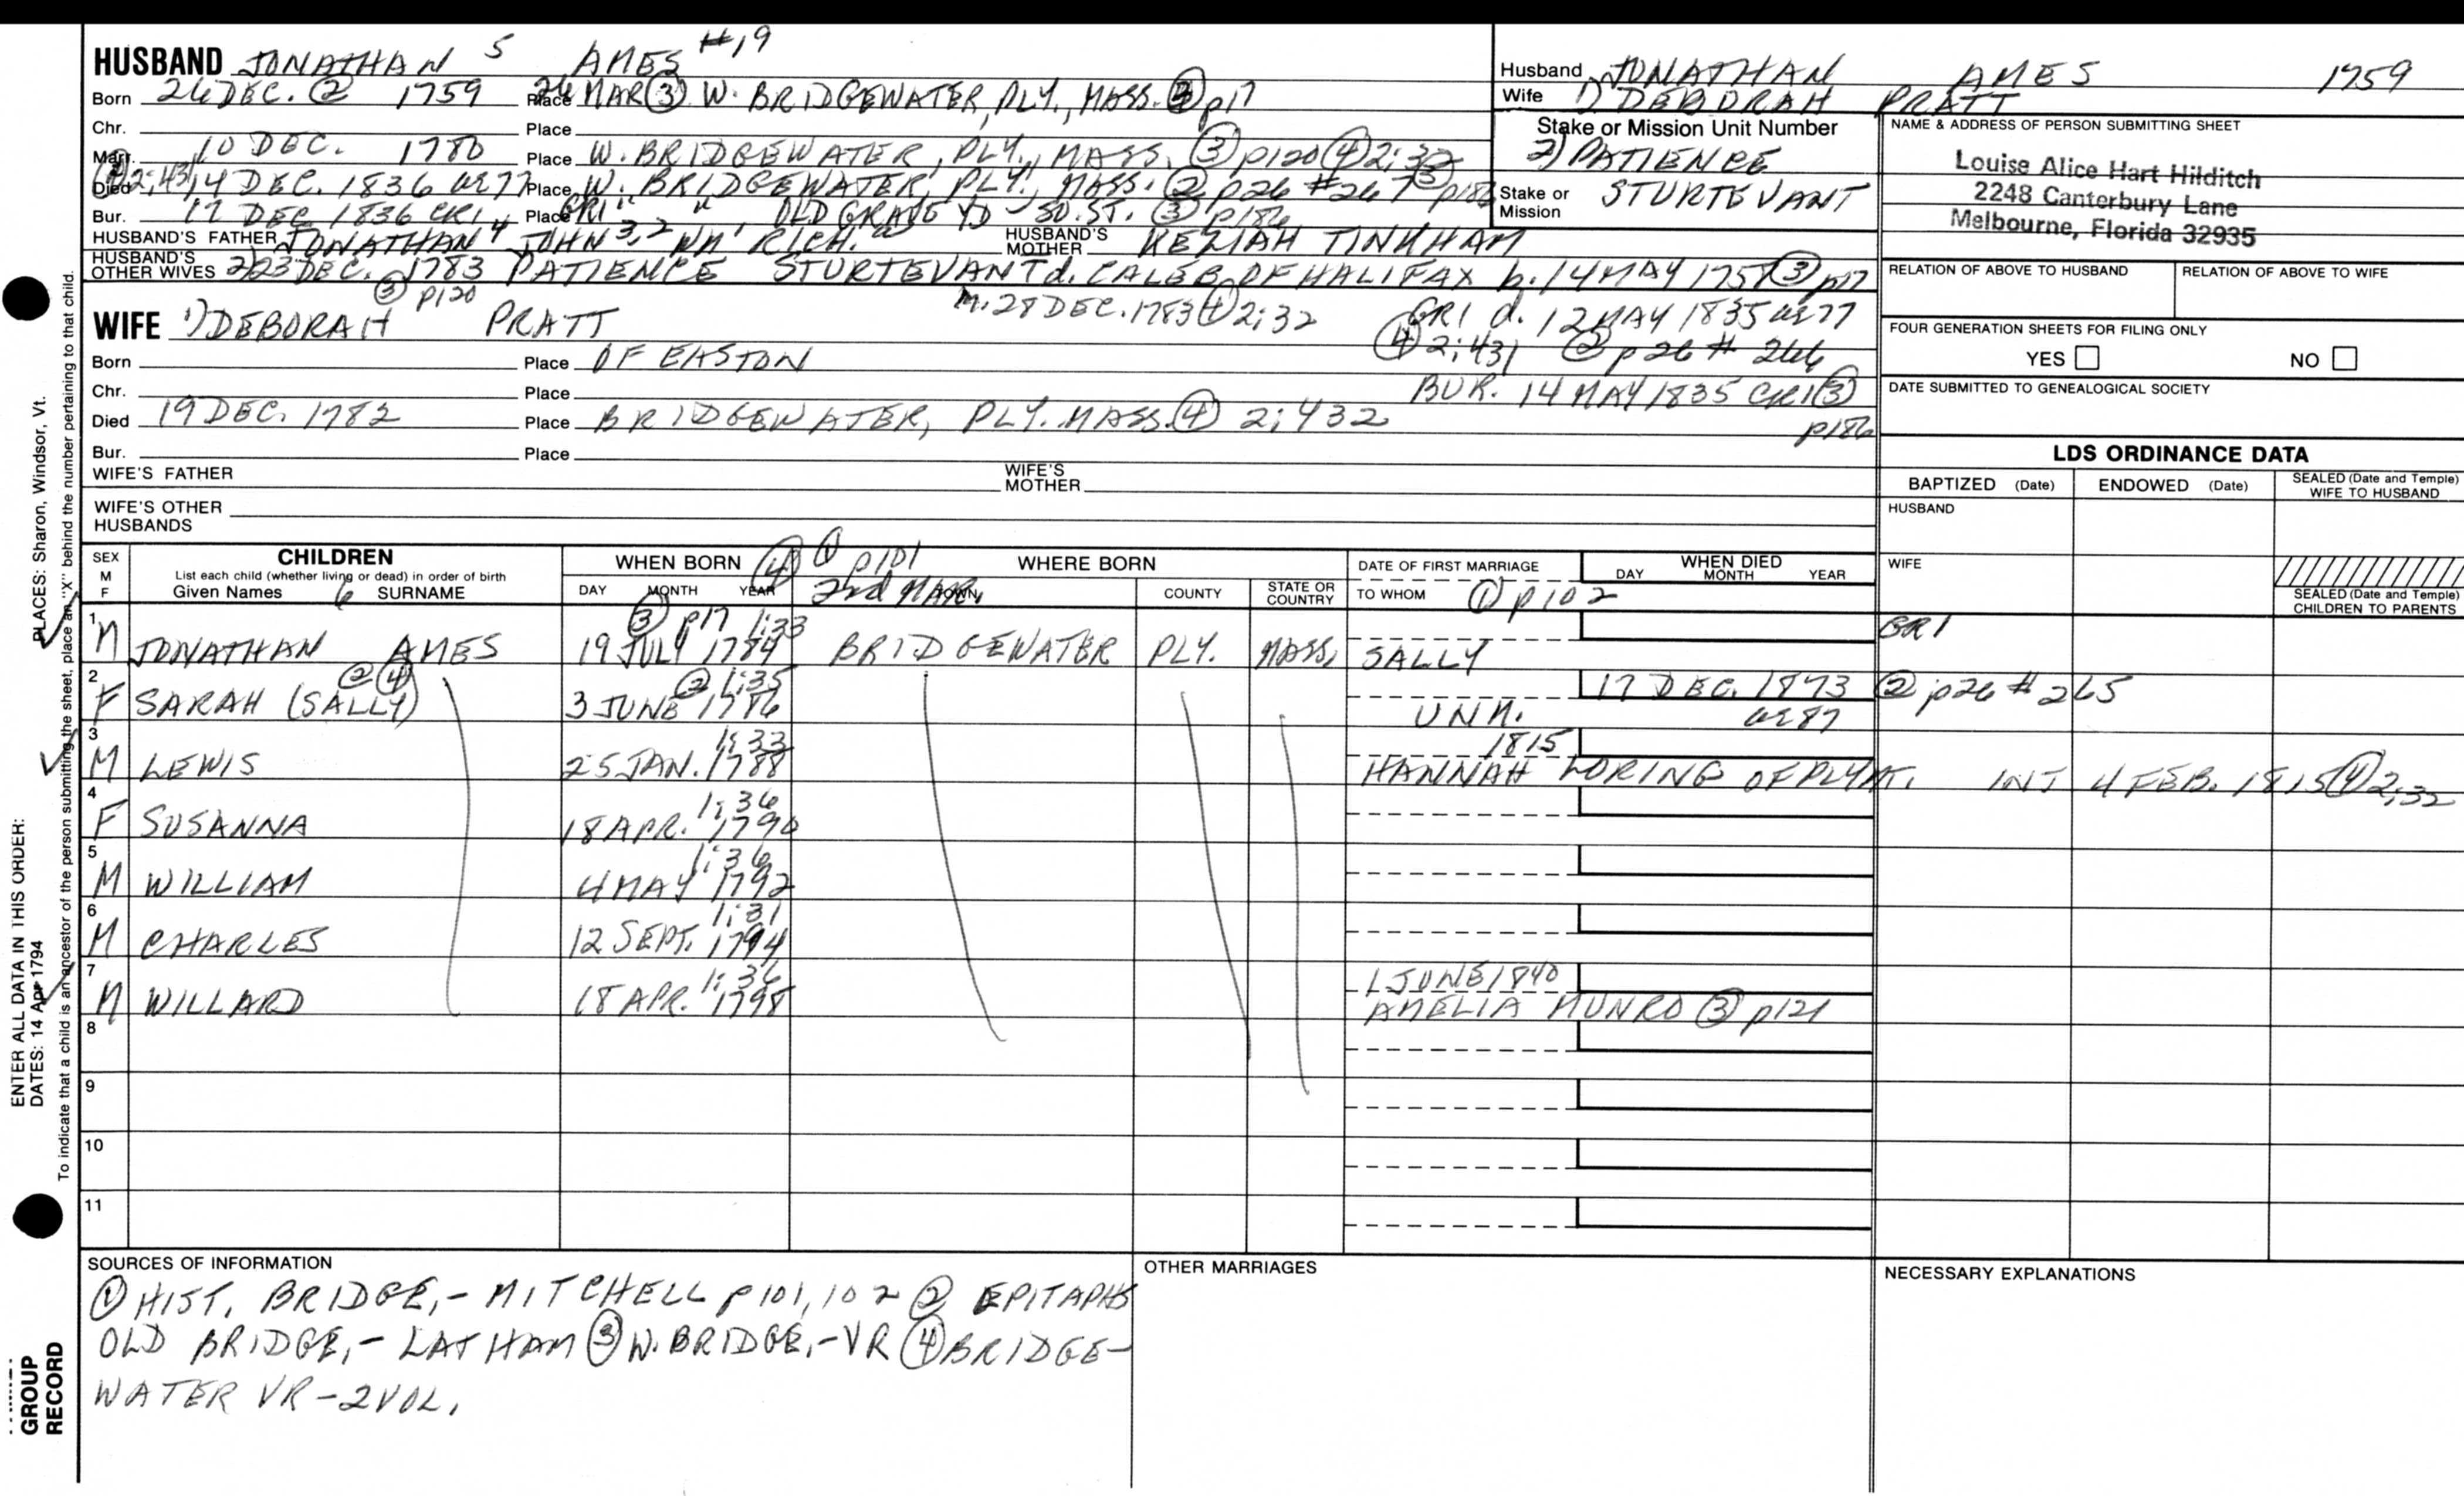 HUSBAND JONATHAN 5 AMES #19
Born 26 DEC. ② 1759 Place 26 MAR ③ W. BRIDGEWATER, PLY., MASS. p17
Chr. Place
Marr. 10 DEC. 1780 Place W. BRIDGEWATER, PLY., MASS. ③ p120 ④ 2:32
Died 14 DEC. 1836 ae 77 Place W. BRIDGEWATER, PLY., MASS. ② p26 #267 ③ p186
Bur. 17 DEC. 1836 GR1 Place GR1 " " OLD GRAVE YD SO. ST. ③ p186
HUSBAND'S FATHER JONATHAN 4 JOHN 3,2 WM 1 RICH. a HUSBAND'S MOTHER KEZIAH TINKHAM
HUSBAND'S OTHER WIVES 2) 23 DEC. 1783 PATIENCE STURTEVANT d. CALEB OF HALIFAX b. 14 MAY 1758 ③ p17
③ p120 M. 28 DEC. 1783 ④ 2:32 GR1 d. 12 MAY 1835 ae 77
WIFE 1) DEBORAH PRATT
④ 2:431 ② p26 # 266
Born Place OF EASTON
Chr. Place BUR. 14 MAY 1835 GR1 ③ p186
Died 19 DEC. 1782 Place BRIDGEWATER, PLY. MASS. ④ 2:432
Bur. Place
WIFE'S FATHER WIFE'S MOTHER
WIFE'S OTHER HUSBANDS
Husband JONATHAN AMES 1759
Wife 1) DEBORAH PRATT
Stake or Mission Unit Number
2) PATIENCE
Stake or Mission STURTEVANT
NAME & ADDRESS OF PERSON SUBMITTING SHEET
Louise Alice Hart Hilditch
2248 Canterbury Lane
Melbourne, Florida 32935
RELATION OF ABOVE TO HUSBAND RELATION OF ABOVE TO WIFE
FOUR GENERATION SHEETS FOR FILING ONLY
YES NO
DATE SUBMITTED TO GENEALOGICAL SOCIETY
LDS ORDINANCE DATA
BAPTIZED (Date) ENDOWED (Date) SEALED (Date and Temple) WIFE TO HUSBAND
HUSBAND
WIFE
SEALED (Date and Temple) CHILDREN TO PARENTS
SEX M F
CHILDREN
List each child (whether living or dead) in order of birth
Given Names 6 SURNAME
WHEN BORN ④ ① p101 WHERE BORN
DAY MONTH YEAR 2nd MAR. TOWN COUNTY STATE OR COUNTRY
DATE OF FIRST MARRIAGE
TO WHOM ① p102
WHEN DIED
DAY MONTH YEAR
③ p17 1:33
1 M JONATHAN AMES 19 JULY 1784 BRIDGEWATER PLY. MASS. SALLY BR1
② ④ ② 1:35
2 F SARAH (SALLY) 3 JUNE 1786 UNM. 17 DEC. 1873 ae 87 ② p26 # 265
1:33 1815
3 M LEWIS 25 JAN. 1788 HANNAH LORING OF PLYM. INT 4 FEB. 1815 ④ 2:32
1:36
4 F SUSANNA 18 APR. 1790
1:36
5 M WILLIAM 4 MAY 1792
1:31
6 M CHARLES 12 SEPT. 1794
1:36 1 JUNE 1840
7 M WILLARD 18 APR. 1798 AMELIA MUNRO ③ p121
8
9
10
11
SOURCES OF INFORMATION
① HIST. BRIDGE,- MITCHELL p101,102 ② EPITAPHS
OLD BRIDGE,- LATHAM ③ W. BRIDGE,-VR ④ BRIDGE-
WATER VR -2 VOL.
OTHER MARRIAGES
NECESSARY EXPLANATIONS
ENTER ALL DATA IN THIS ORDER:
DATES: 14 Apr 1794 PLACES: Sharon, Windsor, Vt.
To indicate that a child is an ancestor of the person submitting the sheet, place an "X" behind the number pertaining to that child.
GROUP
RECORD